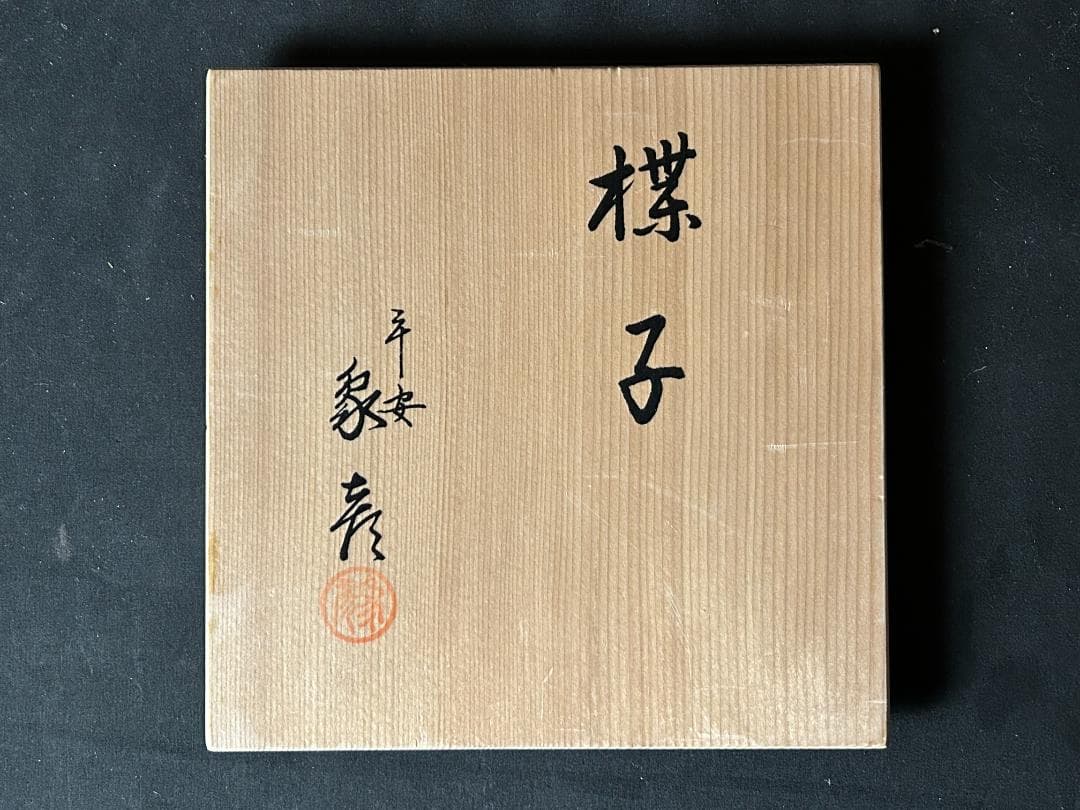 楪子
平安
象彦